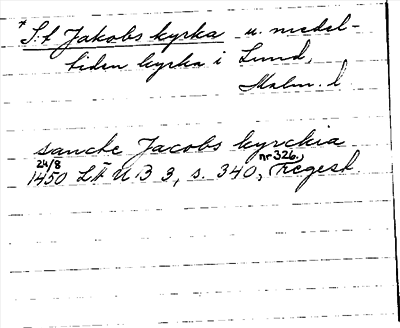 * S:t Jakobs kyrka u. medel-
tiden kyrka i Lund,
Malm. l
sancte Jacobs kyrckia
24/8 1450 LÄU B 3, s. 340, nr 326, regest